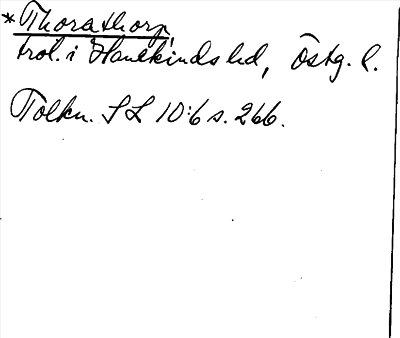 *Thorathorp
trol. i Hanekinds hd, Östg. l.
Tolkn. SL 10:6 s. 266.